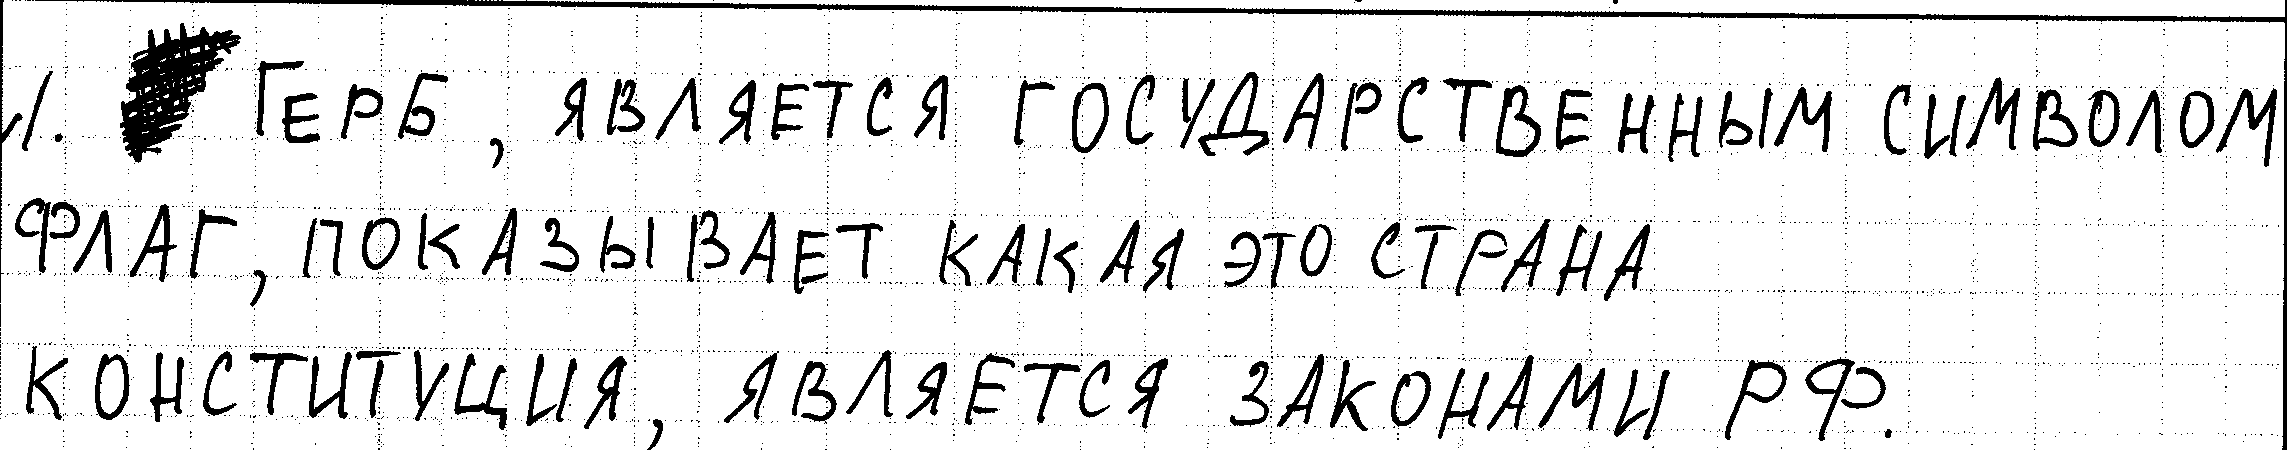 1. Герб, является государственным символом
Флаг, показывает какая это страна
Конституция, является законами РФ.